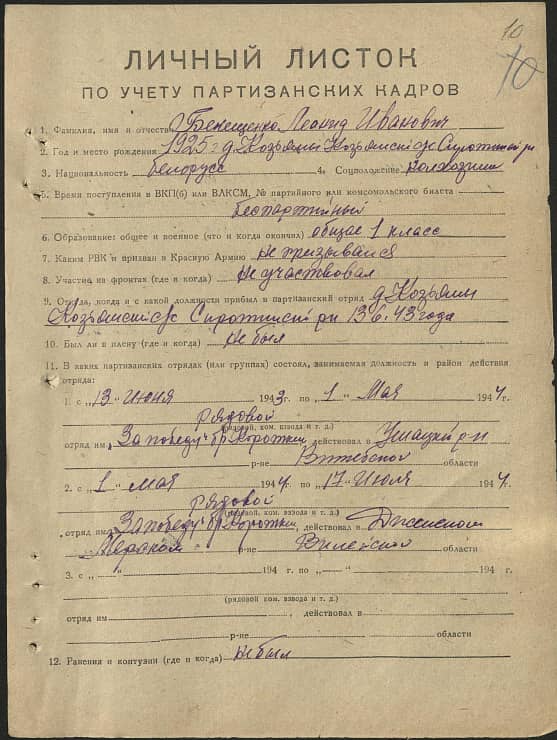 10
10
ЛИЧНЫЙ ЛИСТОК
ПО УЧЕТУ ПАРТИЗАНСКИХ КАДРОВ
1. Фамилия, имя и отчество Леонид Иванович
2. Год и место рождения 1925 г д. Козьяны Козьянский с/с Сиротинский рн
3. Национальность белорусс 4. Соцположение колхозник
5. Время поступления в ВКП(б) или ВЛКСМ, № партийного или комсомольского билета
беспартийный
6. Образование: общее и военное (что и когда окончил) общее 1 класс
7. Каким РВК и призван в Красную Армию не призывался
8. Участие на фронтах (где и когда) не участвовал
9. Откуда, когда и с какой должности прибыл в партизанский отряд д. Козьяны
Козьянский с/с Сиротинский рн 13 6. 43 года
10. Был ли в плену (где и когда) не был
11. В каких партизанских отрядах (или группах) состоял, занимаемая должность и район действия
отряда:
1. с „13“ Июня 1943 г. по „1“ Мая 1944 г.
рядовой
(рядовой, ком. взвода и т. д.)
отряд им. „За победу“ бр. Короткин, действовал в Ушацкий рн
р-не Витебской области
2. с „1“ мая 1944 г. по „17“ Июля 1944 г.
рядовой
(рядовой, ком. взвода и т. д.)
отряд им. „За победу“ бр. Короткин, действовал в Дисненском
Мерском р-не Вилейской области
3. с „—“ 194 г. по „—“ 194 г.
(рядовой, ком. взвода и т. д.)
отряд им. действовал в
р-не области
12. Ранения и контузии (где и когда) не был